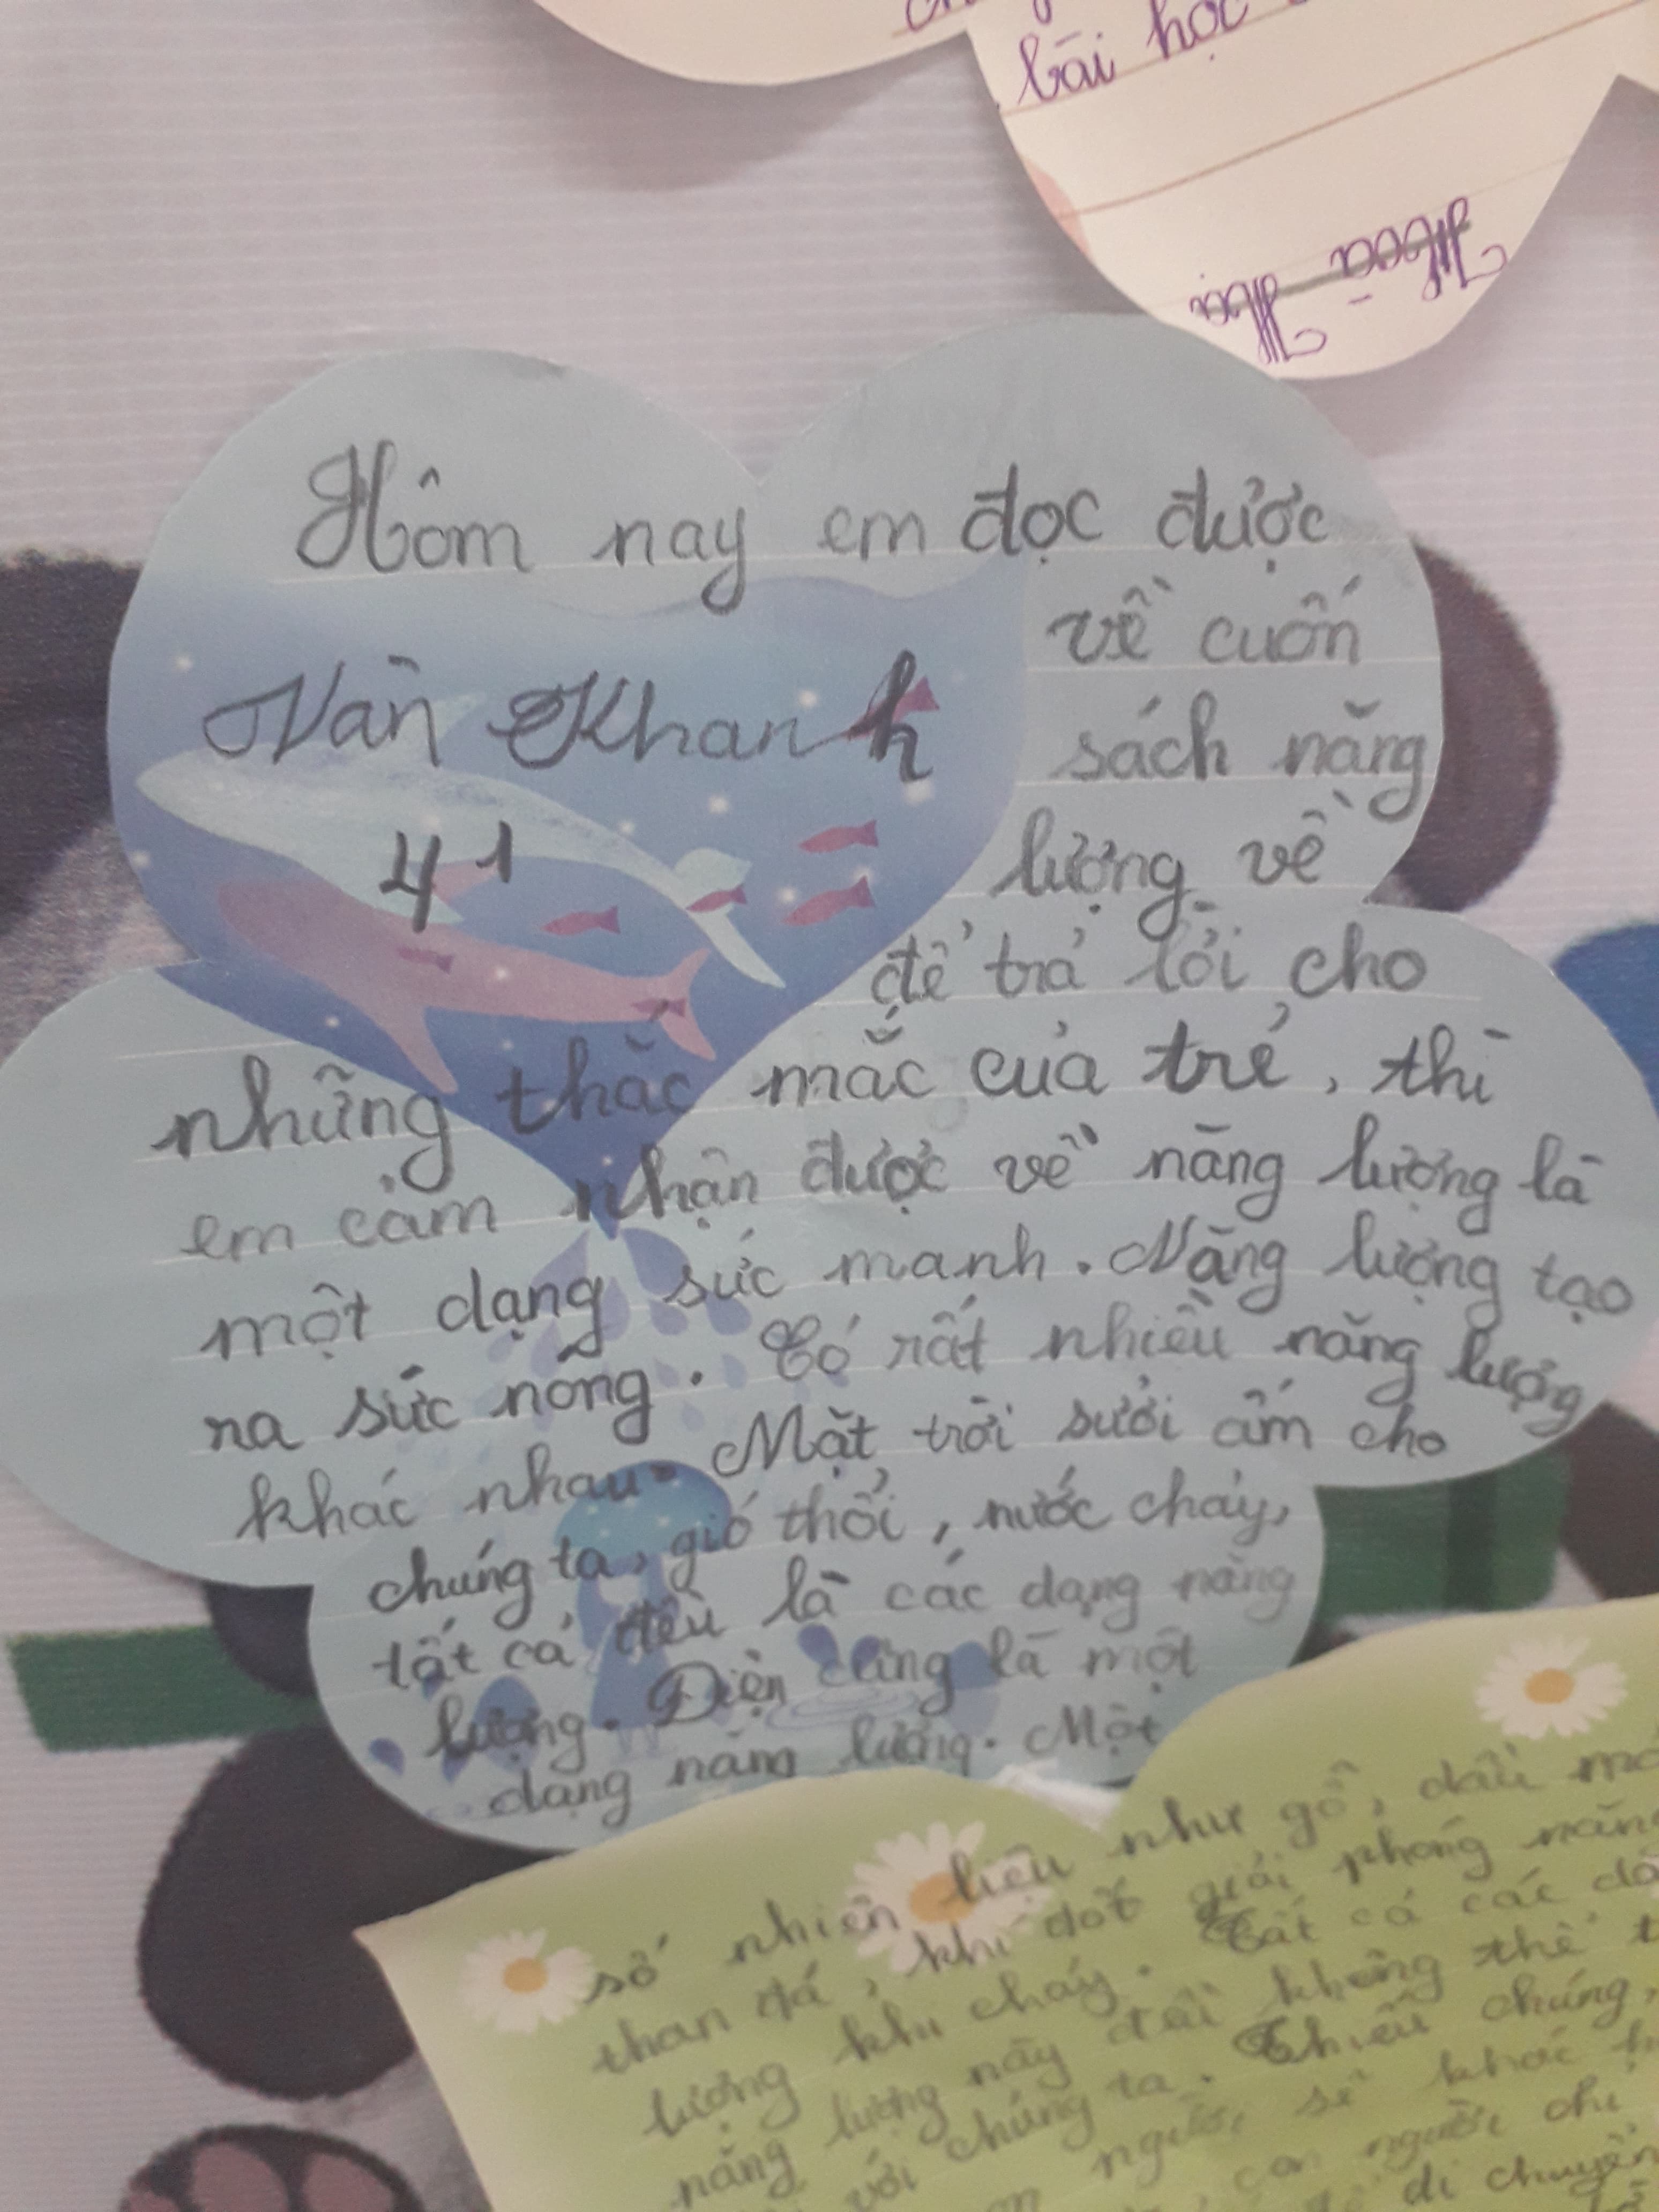 bài học
Hoa
Hôm nay em đọc được
về cuốn
Vàn Khanh
sách năng
41
lượng về
để trả lời cho
những thắc mắc của trẻ, thì
em cảm nhận được về năng lượng là
một dạng sức manh. Năng lượng tạo
ra sức nóng. Có rất nhiều năng lượng
khác nhau. Mặt trời sưởi ấm cho
chúng ta, gió thổi, nước chảy,
tất cả đều là các dạng năng
lượng. Điện cũng là một
dạng năng lượng. Một
số nhiên liệu như gỗ, dầu mỏ
than đá, khi đốt giải phóng năng
lượng khi cháy. Tất cả các
năng lượng này đều không thể
với chúng ta. Thiếu chúng,
người sẽ khác
con người chỉ
di chuyển